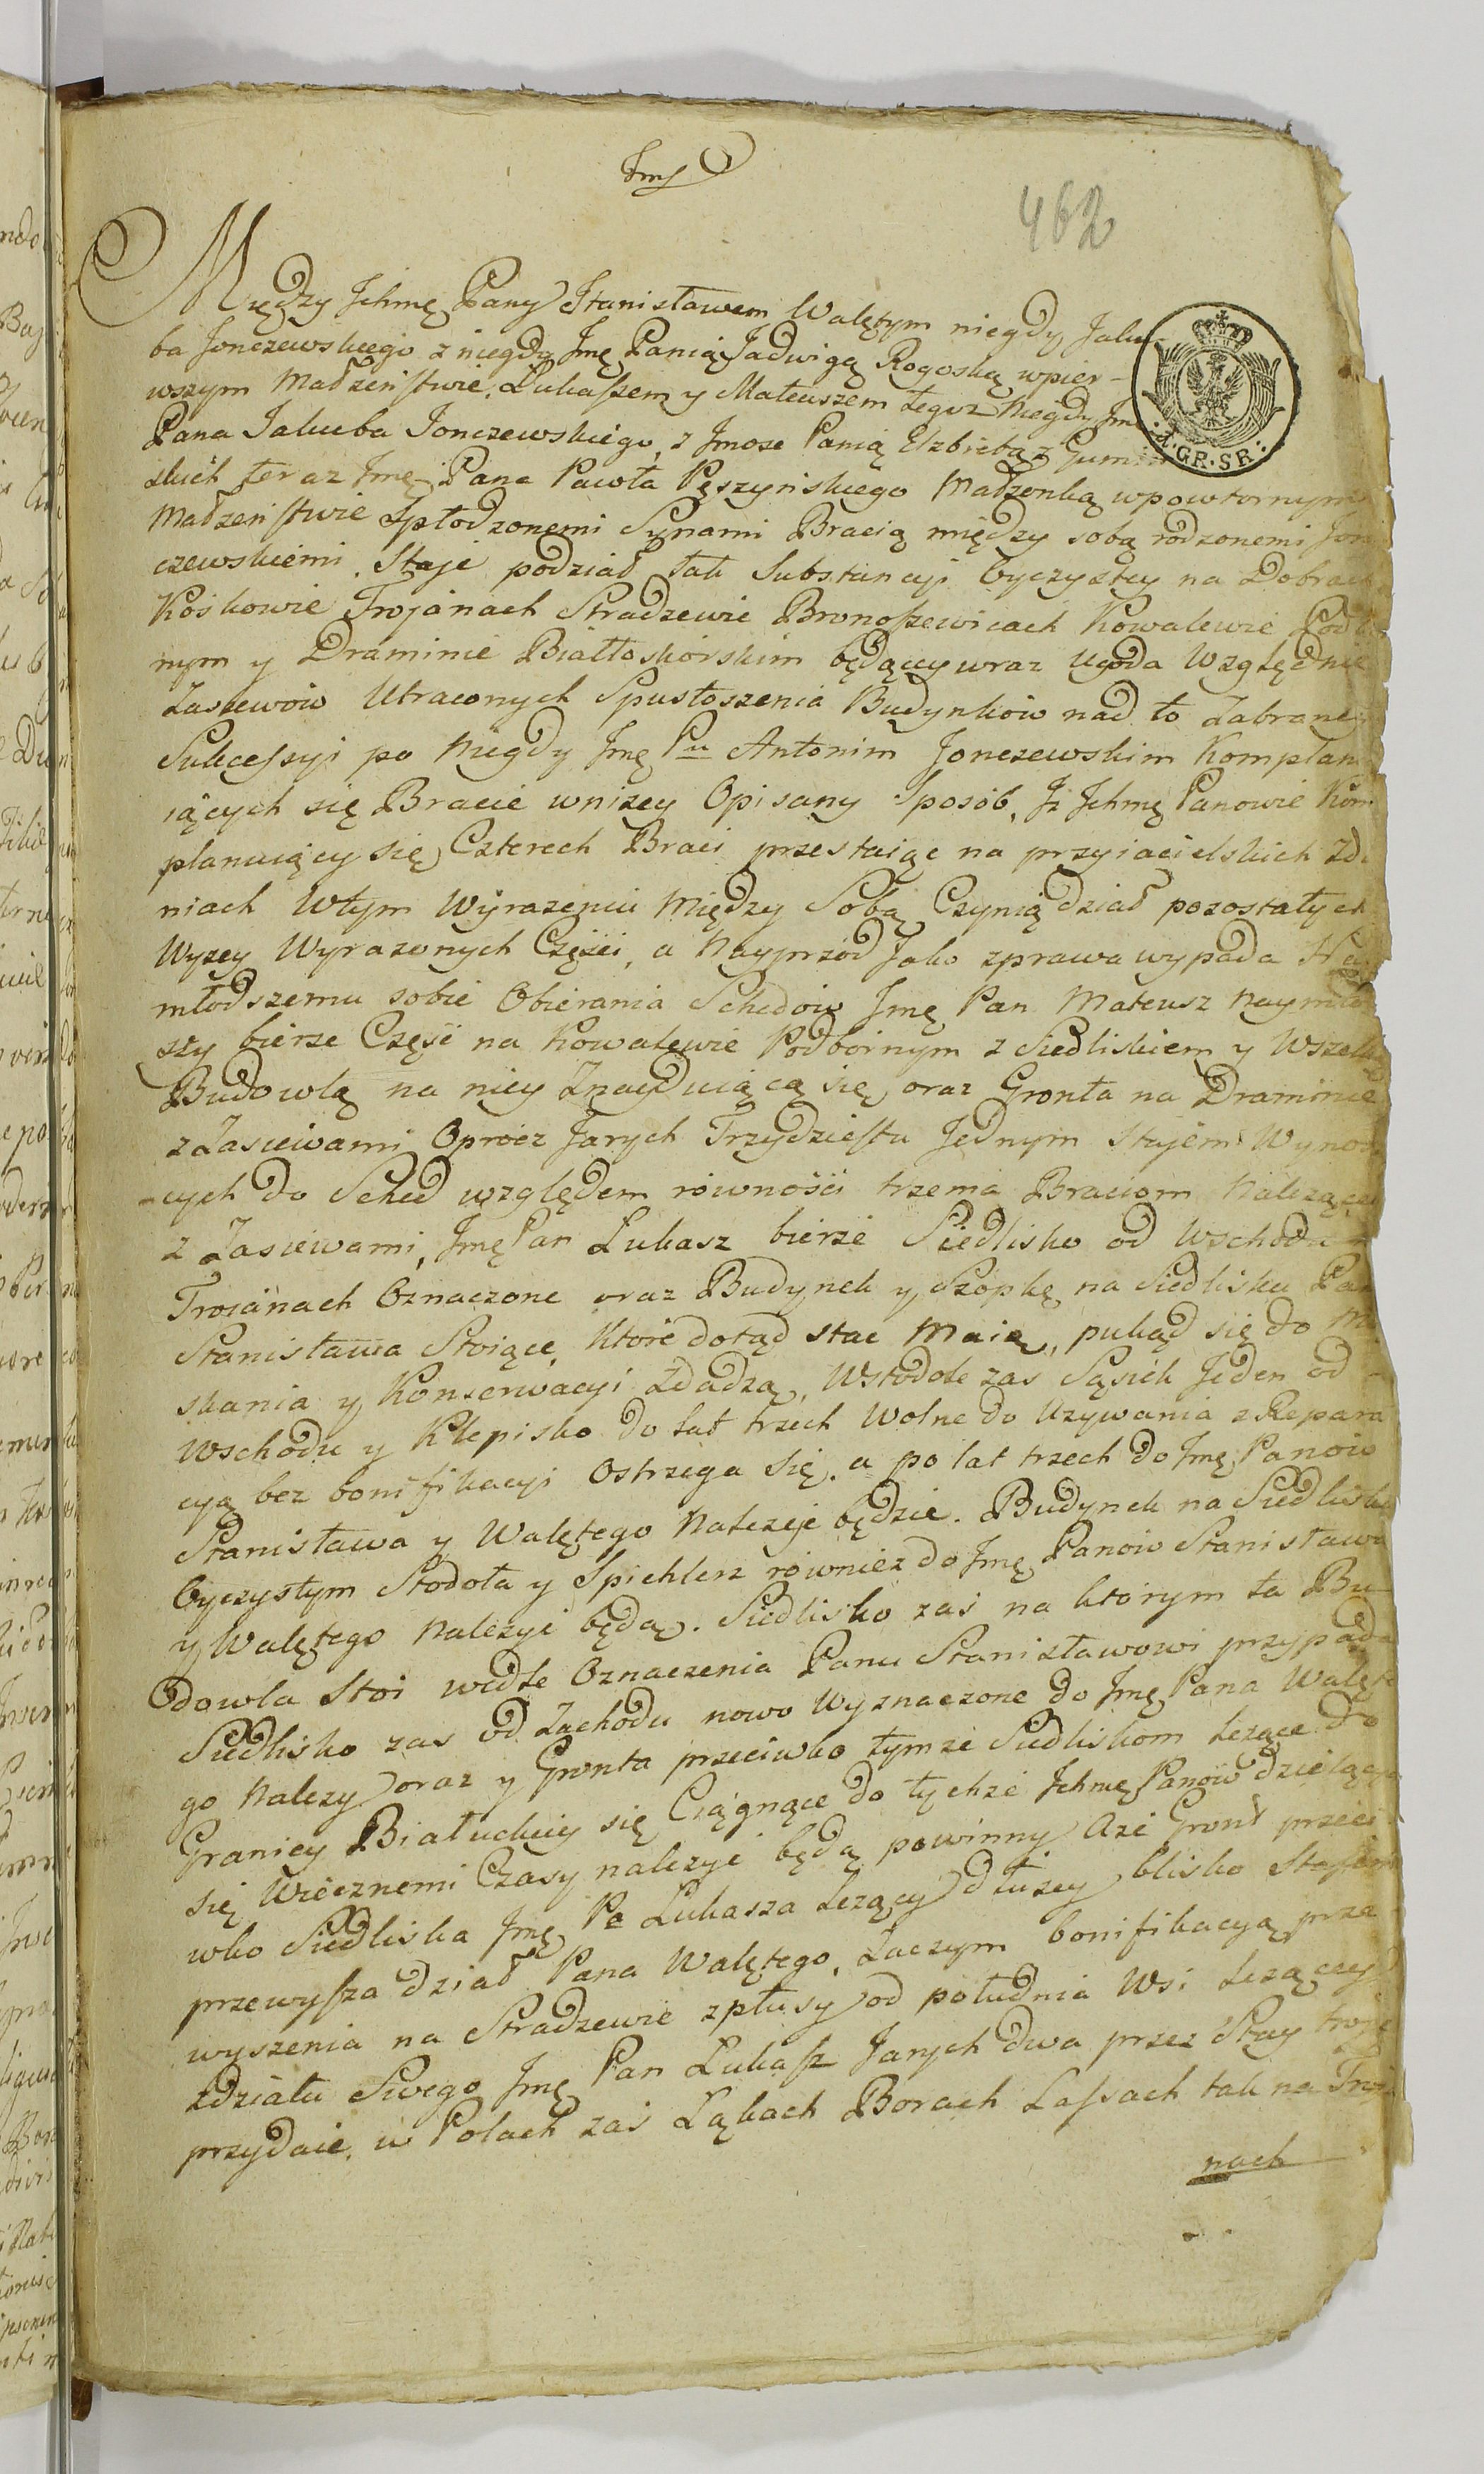 Ims
462
Między Ichmę Pany Stanisławem Walętym niegdy Jaku-
ba Jonczewskiego z niegdy Jmę Panią Jadwigą Rogoską wpier-
wszym Madżeństwie, Łukaszem y Mateuszem tegoz niegdy Jm
Pana Jakuba Jonczewskiego, z Jmose Panią Elzbietą z Gumin
skich teraz Jmę Pana Pawła Pęszyńskiego Madzonką wpowtornym
Madzenstwie Spłodzonemi Synami Bracią między sobą rodzonemi Jon
czewskiemi. Staje podział tak Substancyi Oyczystey na Dobrach
Koskowie Trojanach Stradzewie Bronoszewicach Kowalewie Podb
nym y Draminie Białłoskorskim będącey wraz Ugoda Względnie
Zasiewow Utraconych Spustoszenia Budynkow nad to Zabraney
Sukcessyi po Niegdy Jmę Pu Antonim Jonczewskim Komplan
iących się Bracie wnizey Opisany Sposob, Iz Ichmę Panowie Kom
planuiący się Czterech Braci przestaiąc na przyiacielskich Zda
niach Wtym Wyrazeniu Między Sobą Czynią dział pozostałych
Wyzey Wyrazonych Części, a Nayprzod Jako zprawa wypada Nay
młodszemu sobie Obierania Schedow Jmę Pan Mateusz Naymłod
szy bierze Część na Kowalewie Podbornym z Siedliskiem y Wszelką
Budowlą na niey Znayduiącą się, oraz Gronta na Draminie
z Zasiewami Oprocz Jarych Trzydziestu Jednym Stajem Wynos
-cych do Sched względem rowności trzema Braciom Nalezące
z Zasiewami, Jmę Pan Łukasz bierze Siedlisko od Wschodu
Troianach Oznaczone oraz Budynek y Szopkę na Siedlisku Pan
Stanisława Stoiące, Ktore dotąd stac Maią, pukąd się do M
skania y Konserwacyi Zdadzą, Wstodole zas Sąsiek Jeden od
Wschodu y Klepisko do lat trzech Wolne do Uzywania z Repara
cyą bez bonifikacyi Ostrzega się, a po lat trzech do Jmę Panow
Stanisława y Walętego Nalezeje będzie. Budynek na Siedlisku
Oyczystym Stodoła y Spichlerz rowniez do Jmę Panow Stanisława
y Walętego Nalezyć będą. Siedlisko zas na ktorym ta Bu
dowla Stoi wedle Oznaczenia Panu Stanisławowi przypada
Siedlisko zas od Zachodu nowo Wyznaczone do Jmę Pana Walęte
go Nalezy oraz y Gronta przeciwko tymze Siedliskom Lezące do
Granicy Białuckiey się Ciągnące do tychze Ichmę Panow dzielących
się Wiecznemi Czasy nalezyć będą powinny Aze Gront przeci
wko Siedliska Jmę Pa Łukasza Lezący dłuzey blisko Stajem
przewyssza dział Pana Walętego, Zaczym bonifikacyą prze
wyszenia na Stradzewie zpłusy od południa Wsi Lezących
zdziału Swego Jmę Pan Łukasz Jarych dwa przez Stay troje
przydaie, w Polach zaś Łąkach Borach Lassach tak na Troja
nach